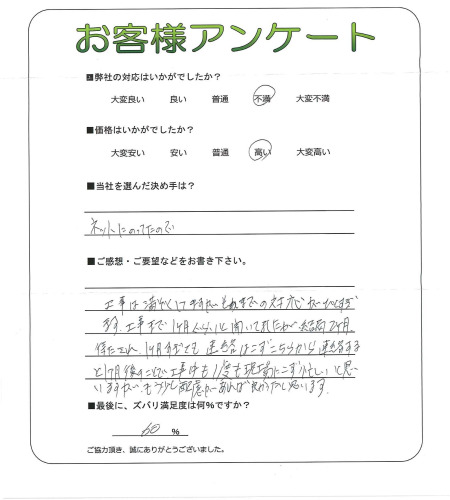 お客様アンケート
■弊社の対応はいかがでしたか?
大変良い 良い 普通 不満 大変不満
■価格はいかがでしたか?
大変安い 安い 普通 高い 大変高い
■当社を選んだ決め手は?
ネットにのってたので
■ご感想・ご要望などをお書き下さい。
工事は それまでの対応が
工事まで1ヶ月くらいと聞いてたが 結局2ヶ月
待たされ、1ヶ月すぎても連絡はこずこちらから連絡する
と1ヶ月後のことで工事中も1度も現場にこず忙しいと思い
いますが もう少し配慮があれば良かったと思います。
■最後に、ズバリ満足度は何%ですか?
60 %
ご協力頂き、誠にありがとうございました。